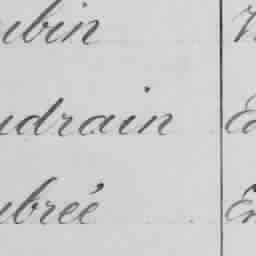 ubin
udrain
ubrée